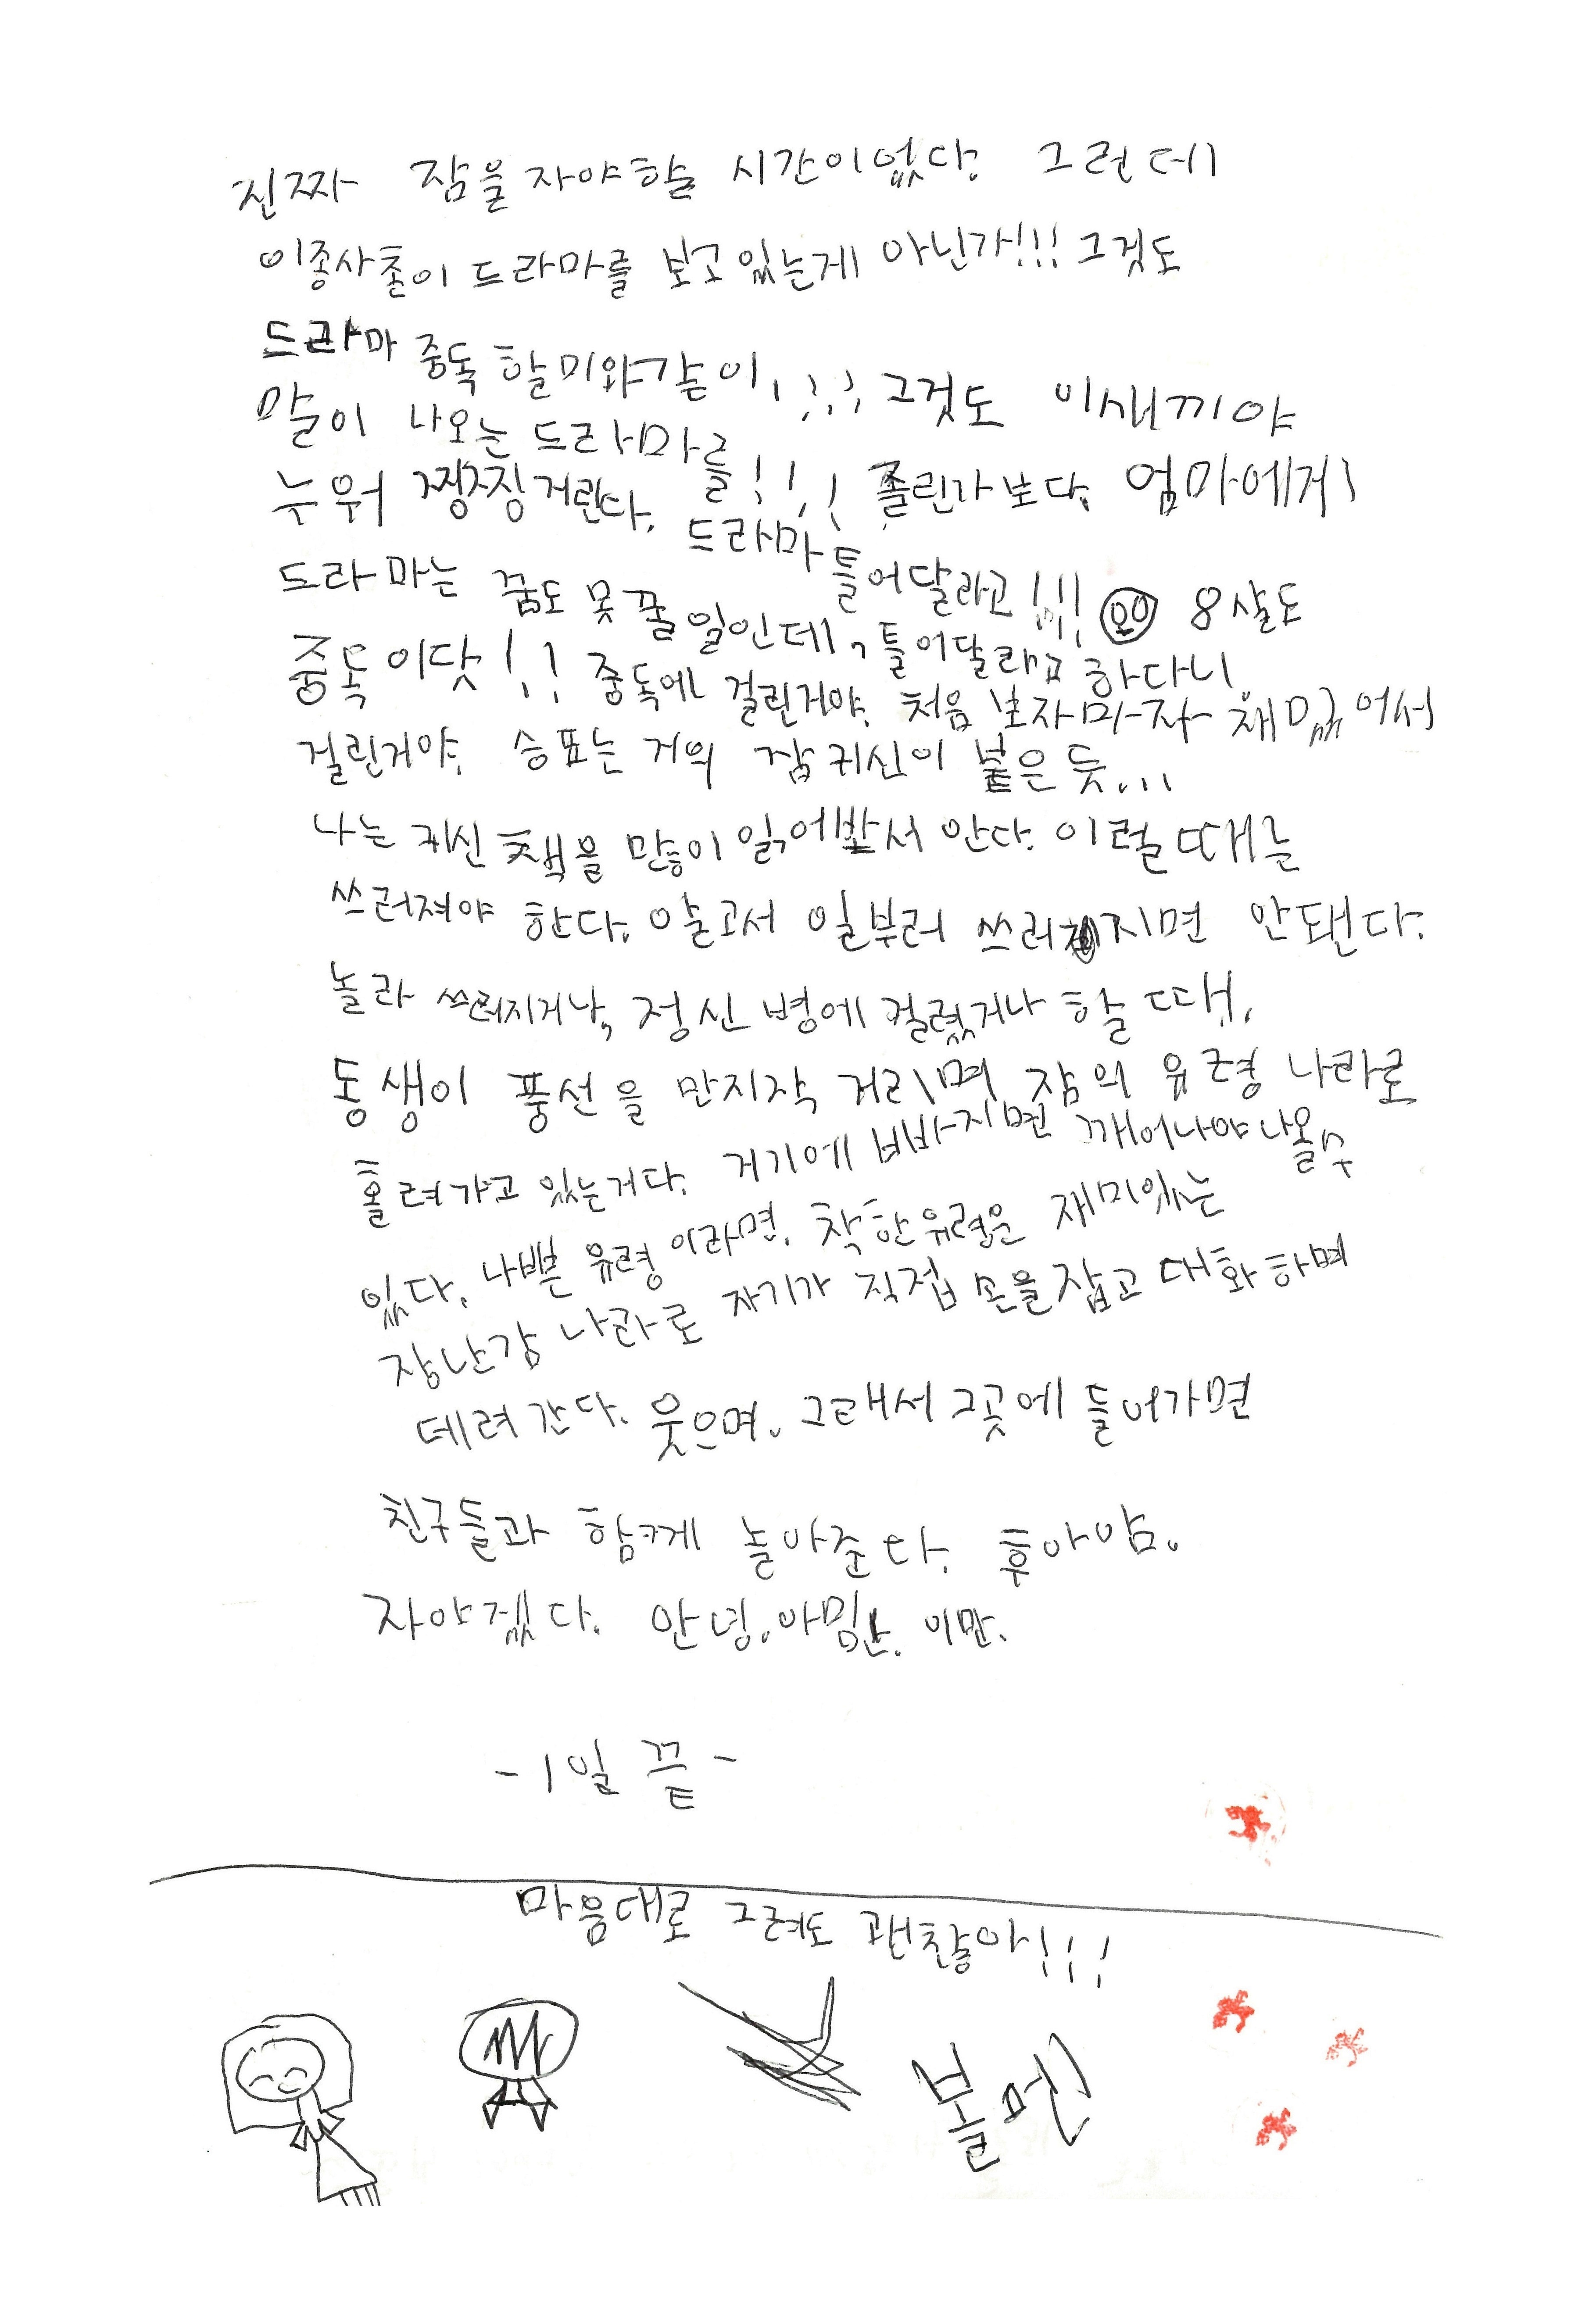 진짜 잠을 자야할 시간이었다. 그런데
이종사촌이 드라마를 보고 있는게 아닌가!!! 그것도
드라마 중독 할미와같이!!!! 그것도 이새끼야
말이 나오는 드라마를!!! 졸린가 보다. 엄마에게
누워 찡찡거린다. 드라마 틀어달라고!!!
드라마는 꿈도 못 꿀 일인데, 틀어달라고 하다니 8살도
중독이닷!!! 중독에 걸린거야. 처음 보자마자 재밌어서
걸린거야. 승표는 거의 잠 귀신이 붙은 듯...
나는 귀신 책을 많이 읽어봐서 안다. 이럴 때는
쓰러져야 한다. 알고서 일부러 쓰러지면 안됀다.
놀라 쓰러지거나, 정신 병에 걸렸거나 할 때.
동생이 풍선을 만지작 거리며 잠의 유령 나라로
홀려가고 있는거다. 거기에 빠지면 깨어나야 나올수
있다. 나쁜 유령이라면. 착한유령은 재미있는
장난감 나라로 자기가 직접 손을 잡고 대화하며
데려간다. 웃으며. 그래서 그곳에 들어가면
친구들과 함께 놀아준다. 후아암.
자야겠다. 안녕. 이만.
-1일 끝-
마음대로 그려도 괜찮아!!!
볼멘